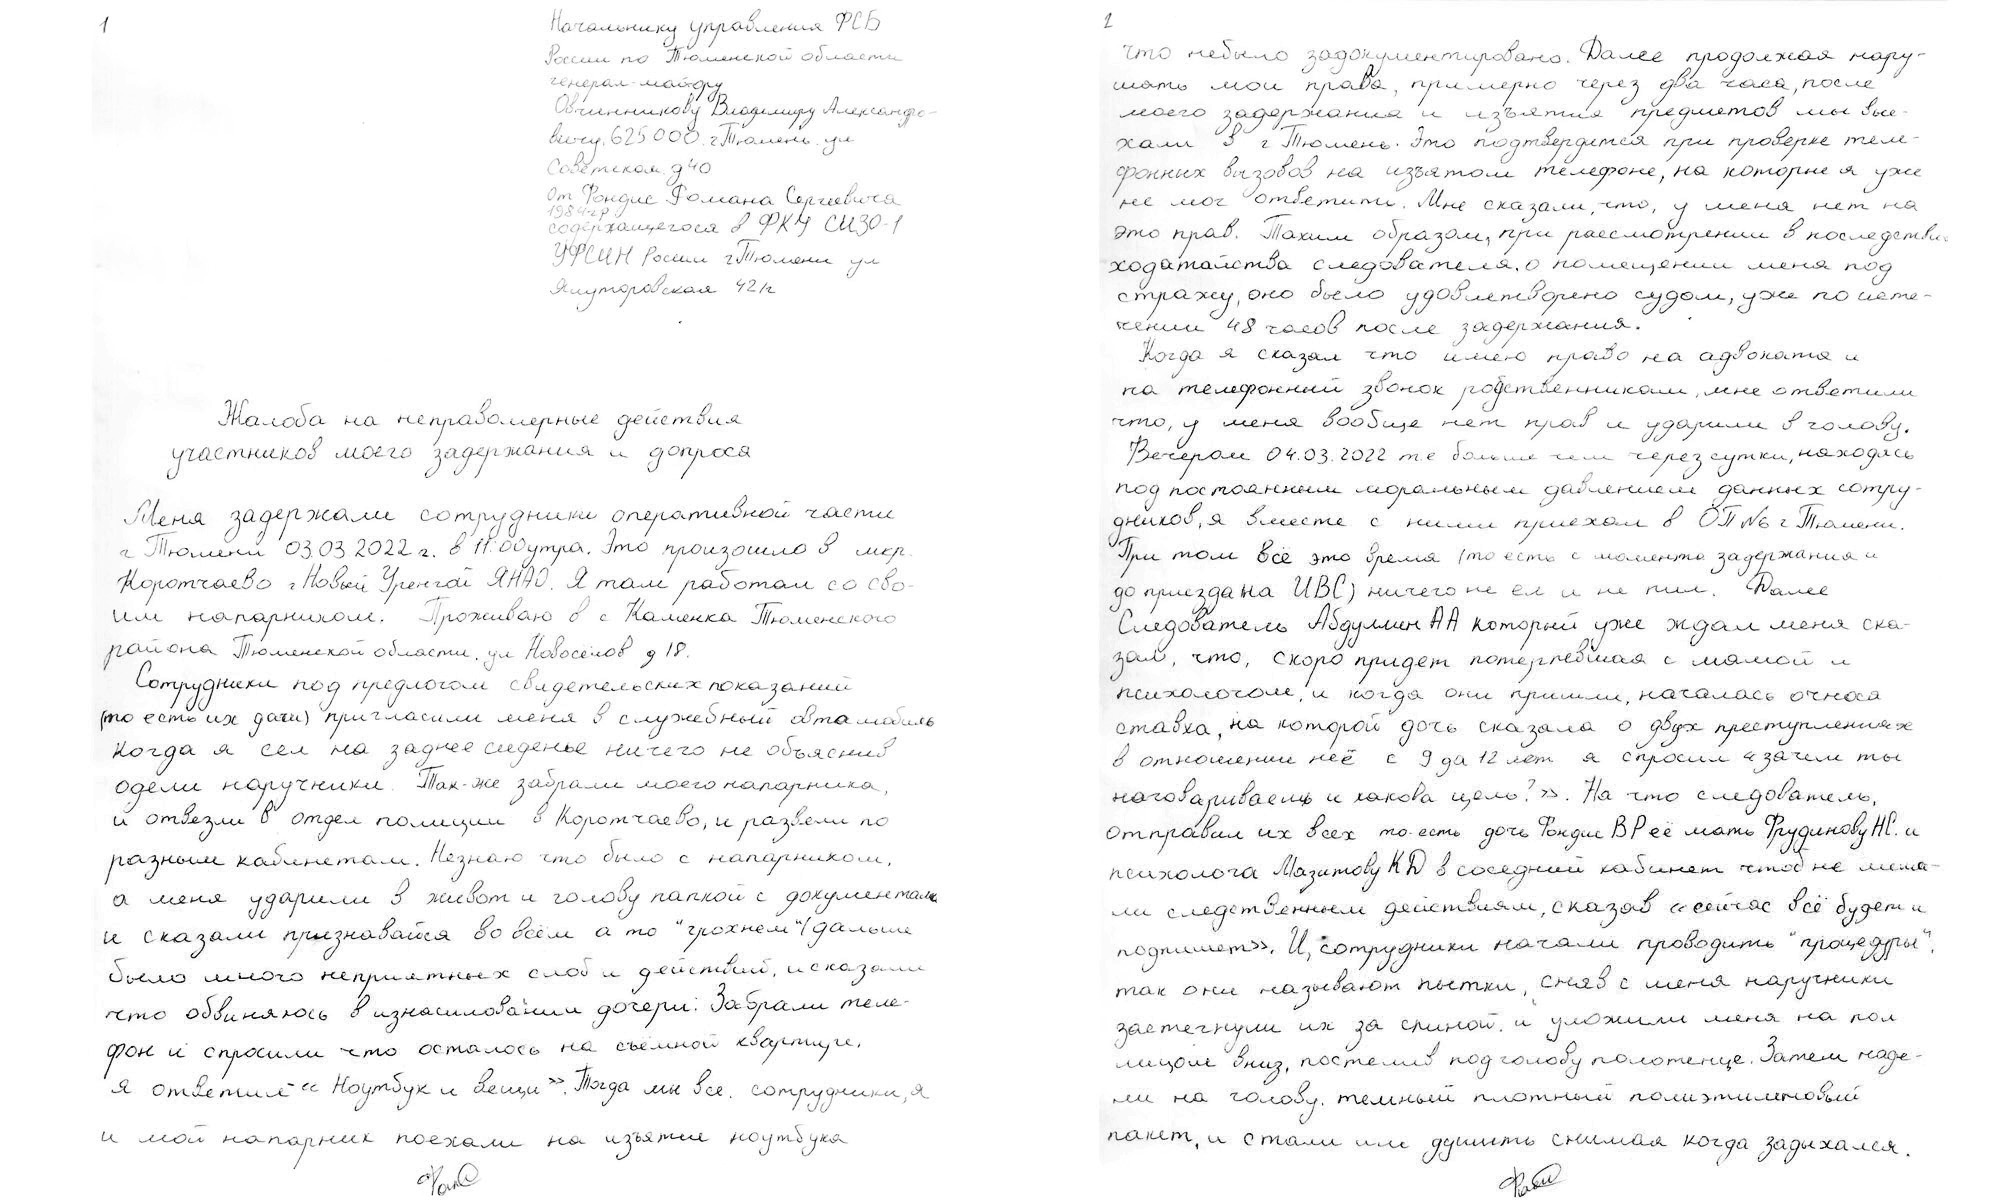 1
Начальнику управления ФСБ
России по Тюменской области
генерал-майору
Овчинникову Владимиру Александро-
вичу. 625000. г Тюмень. ул
Советская д 40
от Фондис Романа Сергеевича
1984гр
содержащегося в ФКУ СИЗО-1
УФСИН России г Тюмени ул
Ялуторовская 42/г
Жалоба на неправомерные действия
участников моего задержания и допроса
Меня задержали сотрудники оперативной части
г Тюмени 03.03 2022г. в 11:00 утра. Это произошло в мкр.
Коротчаево г Новый Уренгой ЯНАО. Я там работал со сво-
им напарником. Проживаю в с Каменка Тюменского
района Тюменской области. ул Новосёлов д 18.
Сотрудники под предлогом свидетельских показаний
(то есть их дачи) пригласили меня в служебный автомобиль
когда я сел на заднее сиденье ничего не объяснив
одели наручники. Так-же забрали моего напарника,
и отвезли в отдел полиции в Коротчаево, и развели по
разным кабинетам. Незнаю что было с напарником,
а меня ударили в живот и голову папкой с документами
и сказали признавайся во всём а то "грохнем" (дальше
было много неприятных слов и действий, и сказали
что обвиняюсь в изнасиловании дочери. Забрали теле-
фон и спросили что осталось на съёмной квартире.
я ответил "« Ноутбук и вещи». Тогда мы все. сотрудники, я
и мой напарник поехали на изъятие ноутбука
2
что небыло задокументировано. Далее продолжая нару-
шать мои права, примерно через два часа, после
моего задержания и изъятия предметов мы вые-
хали в г Тюмень. Это подтвердится при проверке теле-
фонных вызовов на изъятом телефоне, на которые я уже
не мог ответить. Мне сказали, что, у меня нет на
это прав. Таким образом, при рассмотрении в последствии
ходатайства следователя. о помещении меня под
стражу, оно было удовлетворено судом, уже по исте-
чении 48 часов после задержания.
Когда я сказал что имею право на адвоката и
на телефонный звонок родственникам, мне ответили
что, у меня вообще нет прав и ударили в голову.
Вечером 04.03.2022 те больше чем через сутки, находясь
под постоянным моральным давлением данных сотру-
дников, я вместе с ними приехал в ОП №6 г Тюмени.
При том всё это время (то есть с момента задержания и
до приезда на ИВС) ничего не ел и не пил. Далее
Следователь Абдуллин АА который уже ждал меня ска-
зал, что, скоро придет потерпевшая с мамой и
психологом, и когда они пришли, началась очная
ставка, на которой дочь сказала о двух преступлениях
в отношении неё с 9 до 12 лет я спросил «зачем ты
наговариваешь и какова цель?». На что следователь,
отправил их всех то-есть дочь Фондис ВР её мать Фрудинову НС. и
психолога Мазитову КД в соседний кабинет чтоб не меша-
ли следственным действиям, сказав «сейчас всё будет и
подпишет». И, сотрудники начали проводить "процедуры".
так они называют пытки, сняв с меня наручники
застегнули их за спиной. и уложили меня на пол
лицом вниз, постелив под голову полотенце. Затем наде-
ли на голову. темный плотный полиэтиленовый
пакет, и стали им душить снимая когда задыхался.